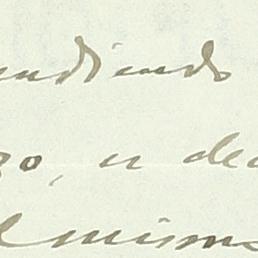 endiendo
go, u dec
l mismo